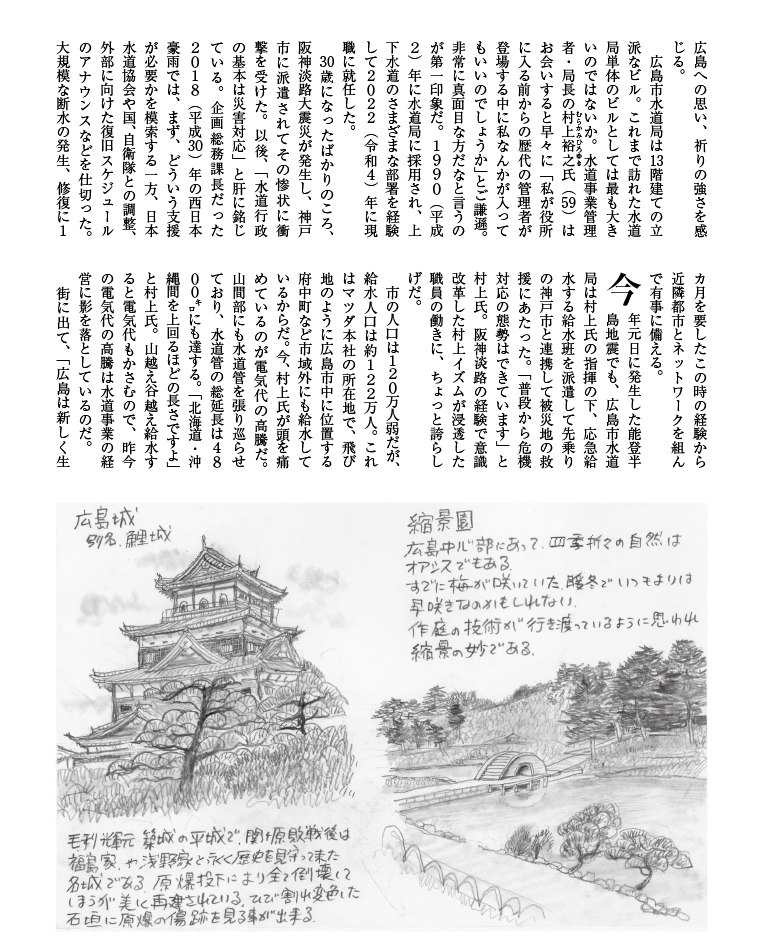 広島への思い、祈りの強さを感
じる。
広島市水道局は13階建ての立
派なビル。これまで訪れた水道
局単体のビルとしては最も大き
いのではないか。水道事業管理
むらかみひろゆき
者・局長の村上裕之氏（59）は
お会いすると早々に「私が役所
に入る前からの歴代の管理者が
登場する中に私なんかが入って
もいいのでしょうか」とご謙遜。
非常に真面目な方だなと言うの
が第一印象だ。1990（平成
2）年に水道局に採用され、上
下水道のさまざまな部署を経験
して2022（令和4）年に現
職に就任した。
30歳になったばかりのころ、
阪神淡路大震災が発生し、神戸
市に派遣されてその惨状に衝
撃を受けた。以後、「水道行政
の基本は災害対応」と肝に銘じ
ている。企画総務課長だった
2018（平成30）年の西日本
豪雨では、まず、どういう支援
が必要かを模索する一方、日本
水道協会や国、自衛隊との調整、
外部に向けた復旧スケジュール
のアナウンスなどを仕切った。
大規模な断水の発生、修復に1
カ月を要したこの時の経験から
近隣都市とネットワークを組ん
で有事に備える。
今年元日に発生した能登半
島地震でも、広島市水道
局は村上氏の指揮の下、応急給
水する給水班を派遣して先乗り
の神戸市と連携して被災地の救
援にあたった。「普段から危機
対応の態勢はできています」と
村上氏。阪神淡路の経験で意識
改革した村上イズムが浸透した
職員の働きに、ちょっと誇らし
げだ。
市の人口は120万人弱だが、
給水人口は約122万人。これ
はマツダ本社の所在地で、飛び
地のように広島市中に位置する
府中町など市域外にも給水して
いるからだ。今、村上氏が頭を痛
めているのが電気代の高騰だ。
山間部にも水道管を張り巡らせ
ており、水道管の総延長は48
00㌔にも達する。「北海道・沖
縄間を上回るほどの長さですよ」
と村上氏。山越え谷越え給水す
ると電気代もかさむので、昨今
の電気代の高騰は水道事業の経
営に影を落としているのだ。
街に出て、「広島は新しく生
縮景園
広島中心部にあって、四季折々の自然は
オアシスでもある。
すでに梅が咲いていた。暖冬でいつもよりは
早咲きなのかもしれない。
作庭の技術が行き渡っているように思われ
縮景の妙である。
広島城
別名、鯉城
毛利輝元築城の平城で、関ヶ原敗戦後は
福島家、や浅野家と永く歴史を見守って来た
名城である。原爆投下により全て倒壊して
しまうが美しく再建されている。ひび割れ変色した
石垣に原爆の傷跡を見る事が出来る。